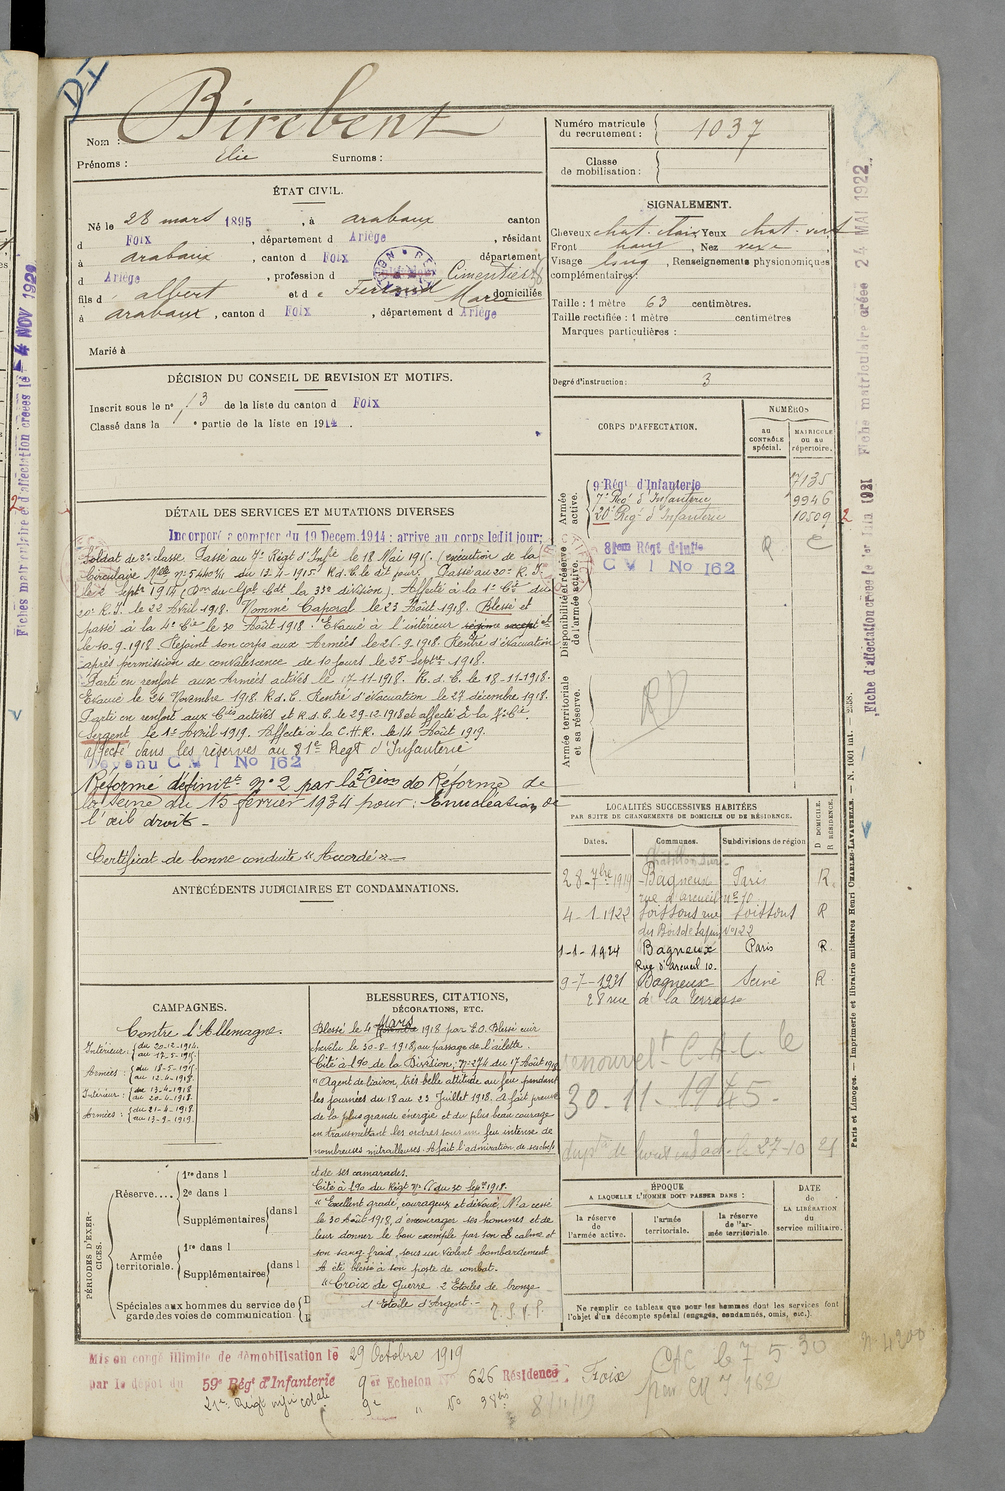 DI
Nom : Birebent
Prénoms : Elie Surnoms :
Numéro matricule du recrutement : 1037
Classe de mobilisation :
ÉTAT CIVIL.
Né le 28 mars 1895, à arabaux canton
d Foix, département d Ariège, résidant
à arabaux, canton d Foix département
d Ariège, profession d Cimentier
fils d albert et de Ferrand Marie domiciliés
à arabaux, canton d Foix, département d Ariège
Marié à
SIGNALEMENT.
Cheveux chat. clair Yeux chat. vert
Front haut, Nez vexe
Visage long, Renseignements physionomiques
complémentaires:
Taille : 1 mètre 63 centimètres.
Taille rectifiée : 1 mètre centimètres
Marques particulières :
Degré d'instruction : 3
DÉCISION DU CONSEIL DE REVISION ET MOTIFS.
Inscrit sous le n° 13 de la liste du canton d Foix
Classé dans la 1e partie de la liste en 1914.
DÉTAIL DES SERVICES ET MUTATIONS DIVERSES
Incorporé à compter du 19 Décem. 1914 : arrivé au corps ledit jour;
Soldat de 2e classe. Passé au 7e Régt d'Infie le 18 Mai 1915. (exécution de la
Circulaire Melle n° 5440 3/1 du 12-4-1915 R.d.C. le dt jour. Passé au 20e R.I.
le 2 Septre 1917 (Don du Ggal Cdt la 33e division). Affecté à la 1e Cie du
20e R.I. le 22 Avril 1918. Nommé Caporal le 23 Août 1918. Blessé et
passé à la 4e Cie le 30 Août 1918. Evacué à l'intérieur
le 10-9-1918. Rejoint son corps aux Armées le 26-9-1918. Rentré d'évacuation
après permission de convalescence de 10 jours le 25 Septre 1918.
Parti en renfort aux Armées actives le 17-11-1918. R.d.C. le 18-11-1918.
Evacué le 24 Novembre 1918. R.d.C. Rentré d'évacuation le 27 décembre 1918.
Parti en renfort aux Cies actives et R.d.C. le 29-12-1918 et affecté à la 7e Cie.
Sergent le 1er Avril 1919. Affecté à la C.H.R. le 14 Août 1919.
affecté dans les réserves au 81e Régt d'Infanterie
Devenu C M I No 162
Réformé définitt n° 2 par la 5e Cion de Réforme de
la Seine du 15 février 1934 pour : Enucléation de
l'œil droit -
Certificat de bonne conduite "Accordé"
ANTÉCÉDENTS JUDICIAIRES ET CONDAMNATIONS.
CORPS D'AFFECTATION.
NUMÉROS
AU CONTRÔLE spécial.
MATRICULE ou au répertoire.
Armée active.
9e Régt d'Infanterie 7135
7e Régt d'Infanterie 9946
20e Régt d'Infanterie 10509
Disponibilité et réserve de l'armée active.
81em Régt d'Infie
C M I No 162
Armée territoriale et sa réserve.
LOCALITÉS SUCCESSIVES HABITÉES
PAR SUITE DE CHANGEMENTS DE DOMICILE OU DE RÉSIDENCE.
Dates. Communes. Subdivisions de région
D DOMICILE. R RÉSIDENCE.
28-7bre 1919 Bagneux Paris R.
rue d'arcueil n° 10
4-1-1922 Soissons rue Soissons R
n° 22
1-1-1924 Bagneux Paris R.
Rue d'Arcueil 10.
9-7-1931 Bagneux Seine R.
28 rue de la terrasse
renouvelt C.A.C. le
30-11-1945.
CAMPAGNES.
Contre l'Allemagne.
Intérieur : du 20-12-1914. au 17-5-1915.
Armées : du 18-5-1915. au 12-4-1918.
Intérieur : du 13-4-1918 au 20-4-1918.
Armées : du 21-4-1918. au 13-9-1919.
BLESSURES, CITATIONS,
DÉCORATIONS, ETC.
Blessé le 4 Mars 1918 par E.O. Blessé cuir
chevelu le 30-8-1918, au passage de l'ailette.
Cité à l'do de la Division, n° 274 du 17 Août 1918
"Agent de liaison très belle attitude au feu pendant
les journées du 18 au 23 Juillet 1918. A fait preuve
de la plus grande énergie et du plus beau courage
en transmettant les ordres sous un feu intense de
nombreuses mitrailleuses. A fait l'admiration de ses chefs
et de ses camarades.
Cité à l'do du Régt du 30 Sept 1918.
"Excellent gradé, courageux et dévoué. N'a cessé
le 30 Août 1918, d'encourager ses hommes et de
leur donner le bon exemple par son calme et
son sang froid, sous un violent bombardement
A été blessé à son poste de combat.
"Croix de Guerre 2 Etoiles de bronze
1 Etoile d'Argent.-
T.S.V.P.
PÉRIODES D'EXERCICES.
Réserve.... 1re dans l
2e dans l
Supplémentaires dans l
Armée territoriale. 1re dans l
Supplémentaires dans l
Spéciales aux hommes du service de garde des voies de communication
ÉPOQUE
A LAQUELLE L'HOMME DOIT PASSER DANS :
la réserve de l'armée active.
l'armée territoriale.
la réserve de l'armée territoriale.
DATE de LA LIBÉRATION du service militaire.
Ne remplir ce tableau que pour les hommes dont les services font
l'objet d'un décompte spécial (engagés, condamnés, omis, etc.).
Mis en congé illimité de démobilisation le 29 Octobre 1919
par le dépôt du 59e Régt d'Infanterie 9e Echelon No 626 Résidence Foix
21e Régt infie colale 9e " No 38bis
8/11/19
CAC le 7 5 30
pour CM I 162
N° 4200
Fiches matriculaire et d'affectation créées le -4 NOV 1929
Fiche d'affectation créée le 1er Mai 1921 Fiche matriculaire créée 24 MAI 1922
Paris et Limoges. — Imprimerie et librairie militaires Henri CHARLES-LAVAUZELLE. — N. 1001 int. — 2558.